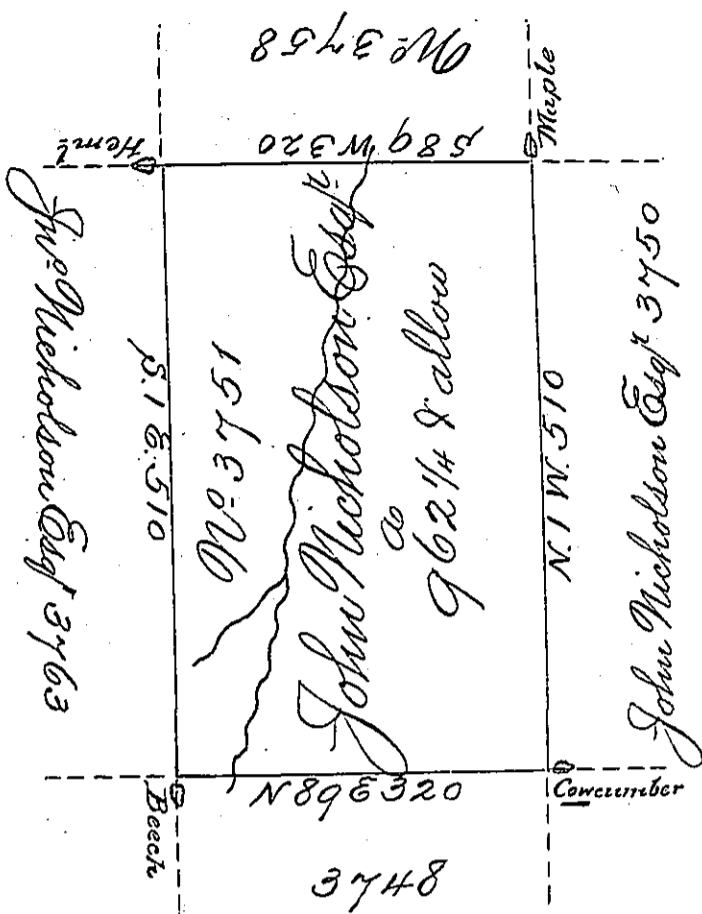 No. 3758
Maple
Heml.
S 89 W 320
Jno. Nicholson Esqr. 3763
S. 1 E. 510
No. 3751
John Nicholson Esqr.
a
962 1/4 & allow
N. 1 W. 510
John Nicholson Esqr. 3750
N 89 E 320
Beech
Cowcumber
3748